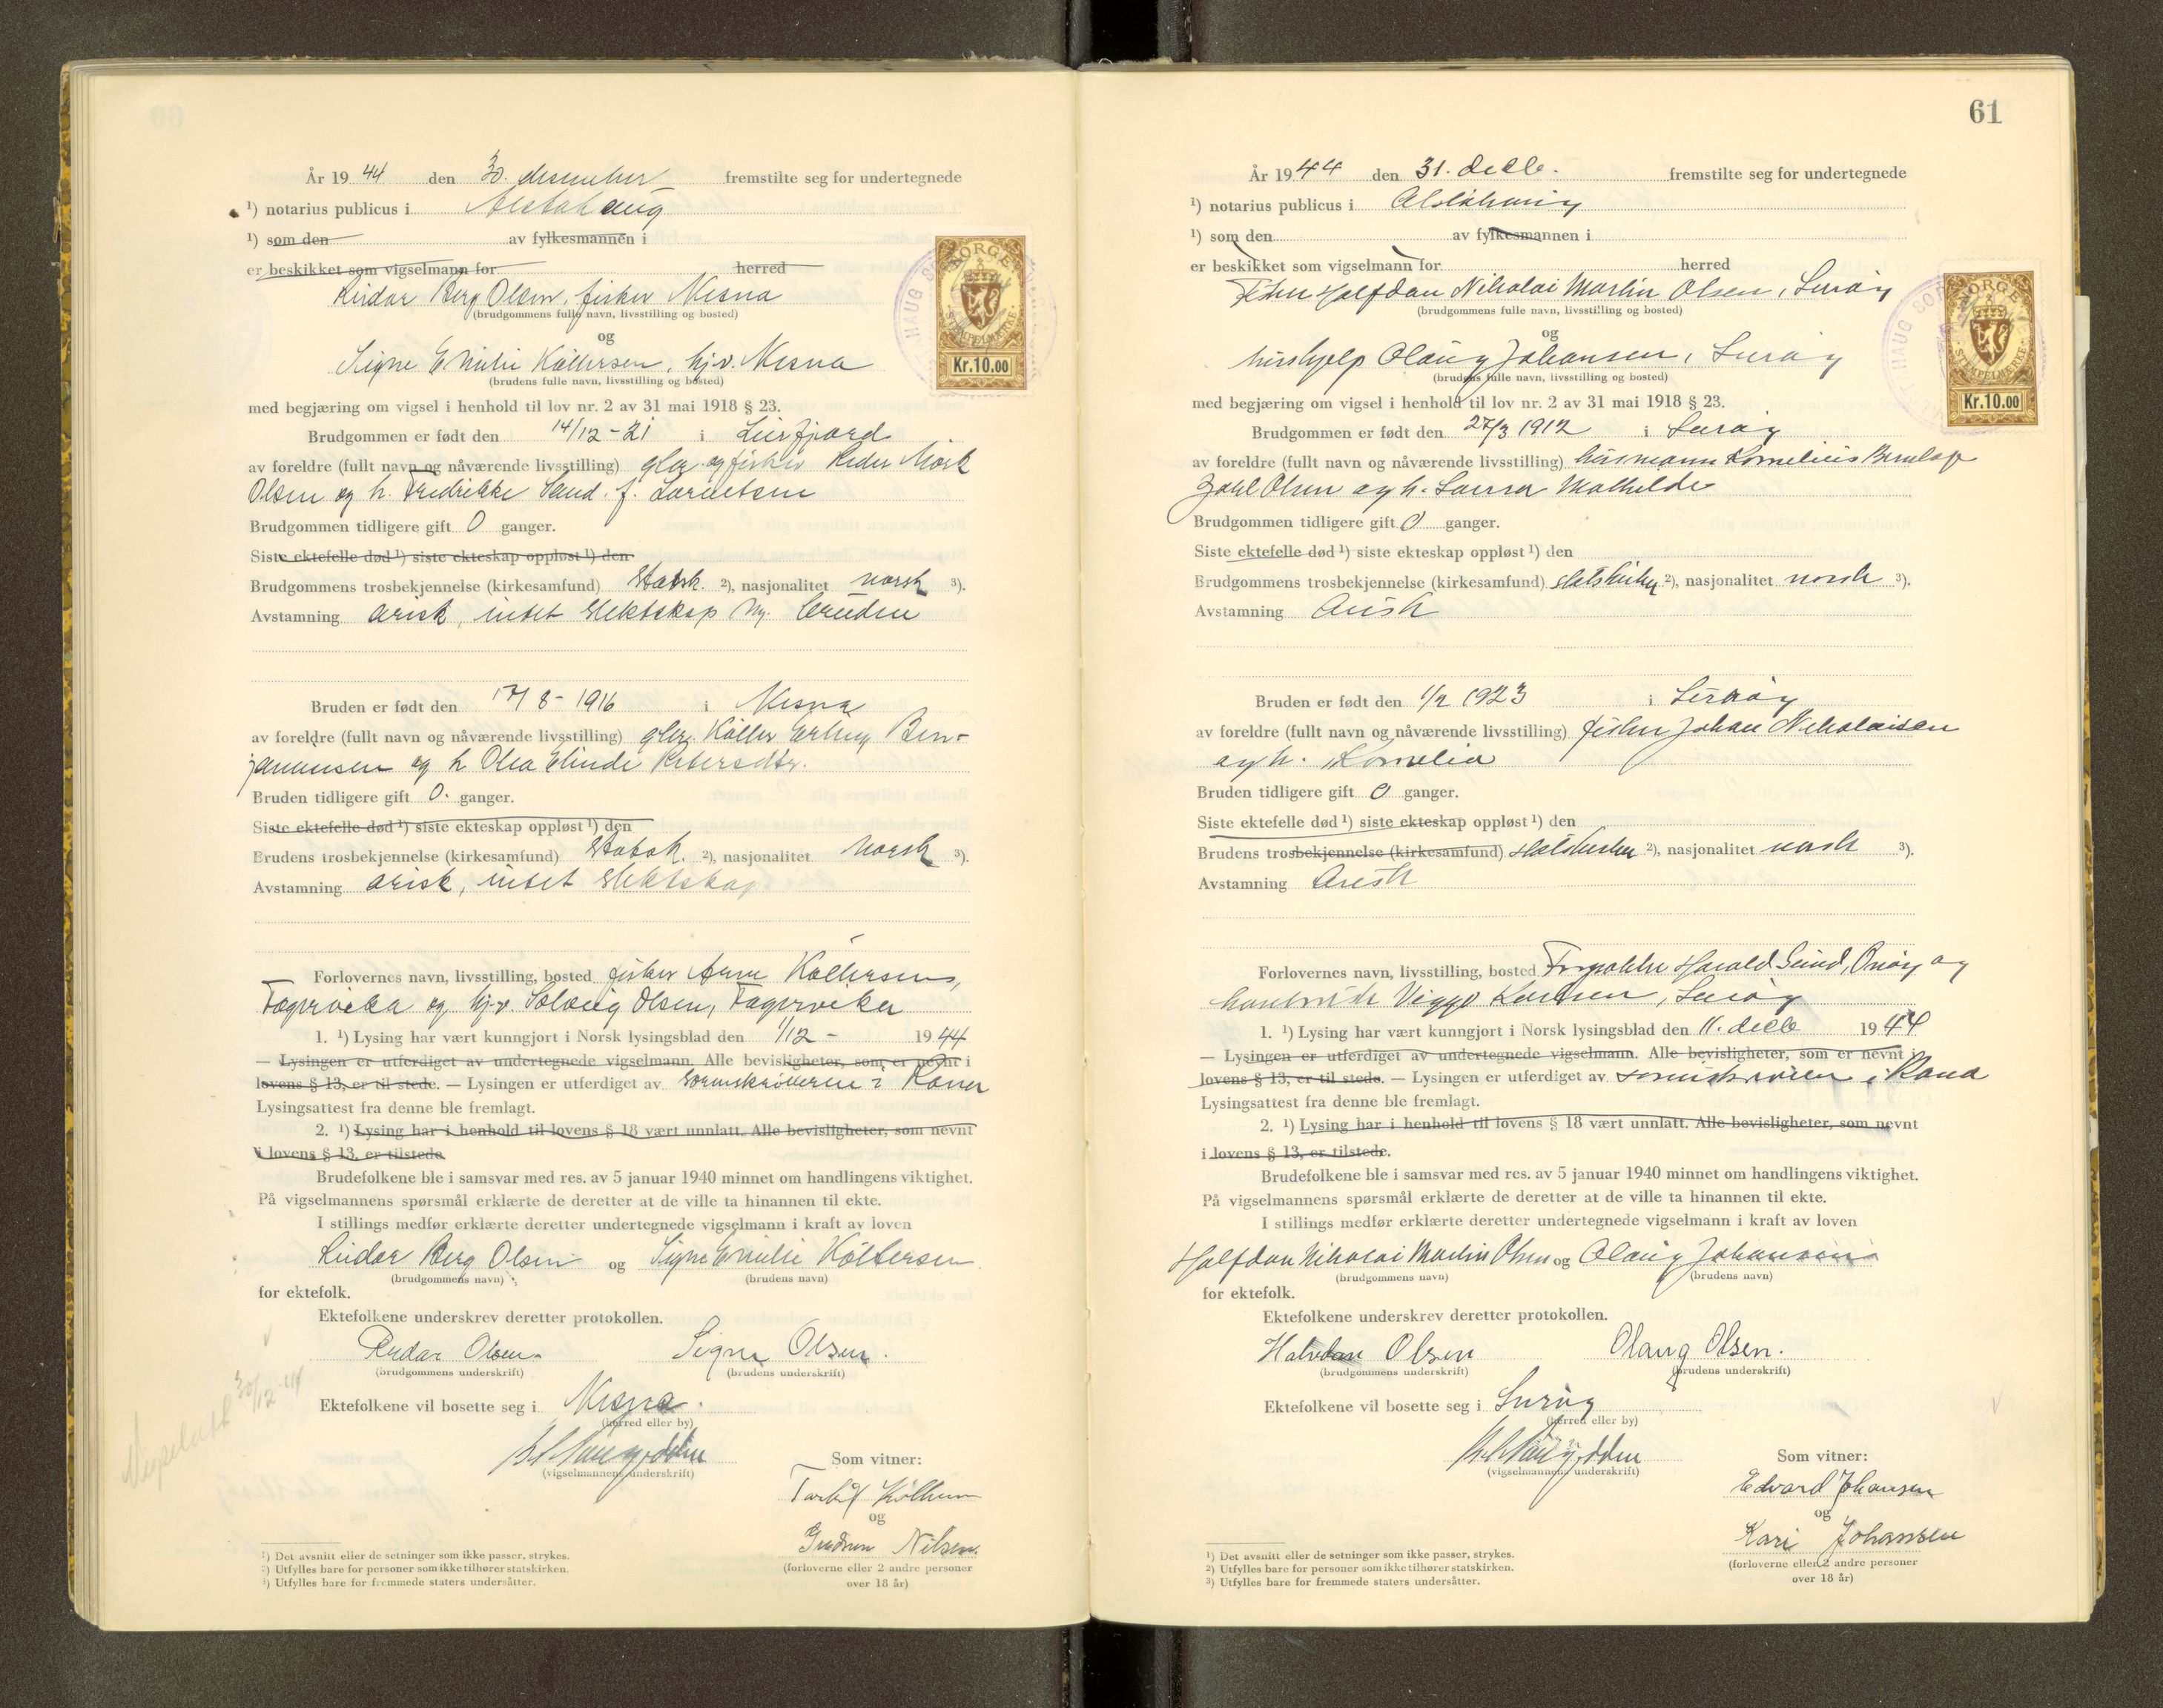 År 1944 den 30. desember fremstilte seg for undertegnede
¹) notarius publicus i Alstahaug
¹) som den av fylkesmannen i
er beskikket som vigselmann for herred
Reidar Berg Olsen, fisker Nesna
(brudgommens fulle navn, livsstilling og bosted)
og
Signe Emilie Køllersen, hj.v. Nesna
(brudens fulle navn, livsstilling og bosted)
NORGE
STEMPELMERKE
Kr.10.00
med begjæring om vigsel i henhold til lov nr. 2 av 31 mai 1918 § 23.
Brudgommen er født den 14/12-21 i
av foreldre (fullt navn og nåværende livsstilling) gbr. og fisker Peder Mørk
Olsen og h. Fredrikke Sand. f. Lorentsen
Brudgommen tidligere gift 0 ganger.
Siste ektefelle død ¹) siste ekteskap oppløst ¹) den
Brudgommens trosbekjennelse (kirkesamfund) Statsk. ²), nasjonalitet norsk ³).
Avstamning arisk, intet slektskap m. bruden
Bruden er født den 17/8-1916 i Nesna
av foreldre (fullt navn og nåværende livsstilling) gbr. Køller Erling Ben-
jaminsen og h Olea Elinde Petersdtr.
Bruden tidligere gift 0. ganger.
Siste ektefelle død ¹) siste ekteskap oppløst ¹) den
Brudens trosbekjennelse (kirkesamfund) Statsk. ²), nasjonalitet Norsk ³).
Avstamning arisk, intet slektskap
Forlovernes navn, livsstilling, bosted fisker Arne Køllersen,
Fagervika og hj.v. Solveig Olsen, Fagervika
1. ¹) Lysing har vært kunngjort i Norsk lysingsblad den 1/12 - 1944
— Lysingen er utferdiget av undertegnede vigselmann. Alle bevisligheter, som er nevnt i
lovens § 13, er til stede. — Lysingen er utferdiget av sorenskriveren i Rana
Lysingsattest fra denne ble fremlagt.
2. ¹) Lysing har i henhold til lovens § 18 vært unnlatt. Alle bevisligheter, som nevnt
i lovens § 13, er tilstede.
Brudefolkene ble i samsvar med res. av 5 januar 1940 minnet om handlingens viktighet.
På vigselmannens spørsmål erklærte de deretter at de ville ta hinannen til ekte.
I stillings medfør erklærte deretter undertegnede vigselmann i kraft av loven
Reidar Berg Olsen og Signe Emilie Køllersen
(brudgommens navn) (brudens navn)
for ektefolk.
Ektefolkene underskrev deretter protokollen.
Reidar Olsen Signe Olsen.
(brudgommens underskrift) (brudens underskrift)
30/12-44
Ektefolkene vil bosette seg i Nesna.
(herred eller by)
(vigselmannens underskrift)
Som vitner:
og
Gudrun Nilsen.
(forloverne eller 2 andre personer
over 18 år)
¹) Det avsnitt eller de setninger som ikke passer, strykes.
²) Utfylles bare for personer som ikke tilhører statskirken.
³) Utfylles bare for fremmede staters undersåtter.
61
År 1944 den 31. decb. fremstilte seg for undertegnede
¹) notarius publicus i Alstahaug
¹) som den av fylkesmannen i
er beskikket som vigselmann for herred
Fisker Halfdan Nikolai Martin Olsen, Lurøy
(brudgommens fulle navn, livsstilling og bosted)
og
hushjelp Olaug Johansen, Lurøy
(brudens fulle navn, livsstilling og bosted)
NORGE
STEMPELMERKE
Kr.10.00
med begjæring om vigsel i henhold til lov nr. 2 av 31 mai 1918 § 23.
Brudgommen er født den 27/3 1912 i Lurøy
av foreldre (fullt navn og nåværende livsstilling) husmann Kornelius Benelap
Zahl Olsen og h. Laura Mathilde
Brudgommen tidligere gift 0 ganger.
Siste ektefelle død ¹) siste ekteskap oppløst ¹) den
Brudgommens trosbekjennelse (kirkesamfund) statskirken ²), nasjonalitet norsk ³).
Avstamning Arisk
Bruden er født den 1/2 1923 i Lurøy
av foreldre (fullt navn og nåværende livsstilling) fisker Johan Nikolaisen
og h. Kornelia
Bruden tidligere gift 0 ganger.
Siste ektefelle død ¹) siste ekteskap oppløst ¹) den
Brudens trosbekjennelse (kirkesamfund) statskirken ²), nasjonalitet norsk ³).
Avstamning Arisk
Forlovernes navn, livsstilling, bosted Forpakter Harald Sund, Onøy og
Viggo Karlsen, Lurøy
1. ¹) Lysing har vært kunngjort i Norsk lysingsblad den 11. decb 1944
— Lysingen er utferdiget av undertegnede vigselmann. Alle bevisligheter, som er nevnt i
lovens § 13, er til stede. — Lysingen er utferdiget av sorenskriveren i Rana
Lysingsattest fra denne ble fremlagt.
2. ¹) Lysing har i henhold til lovens § 18 vært unnlatt. Alle bevisligheter, som nevnt
i lovens § 13, er tilstede.
Brudefolkene ble i samsvar med res. av 5 januar 1940 minnet om handlingens viktighet.
På vigselmannens spørsmål erklærte de deretter at de ville ta hinannen til ekte.
I stillings medfør erklærte deretter undertegnede vigselmann i kraft av loven
Halfdan Nikolai Martin Olsen og Olaug Johansen
(brudgommens navn) (brudens navn)
for ektefolk.
Ektefolkene underskrev deretter protokollen.
Halvdan Olsen Olaug Olsen.
(brudgommens underskrift) (brudens underskrift)
Ektefolkene vil bosette seg i Lurøy
(herred eller by)
(vigselmannens underskrift)
Som vitner:
Edvard Johansen
og
Kari Johansen
(forloverne eller 2 andre personer
over 18 år)
¹) Det avsnitt eller de setninger som ikke passer, strykes.
²) Utfylles bare for personer som ikke tilhører statskirken.
³) Utfylles bare for fremmede staters undersåtter.